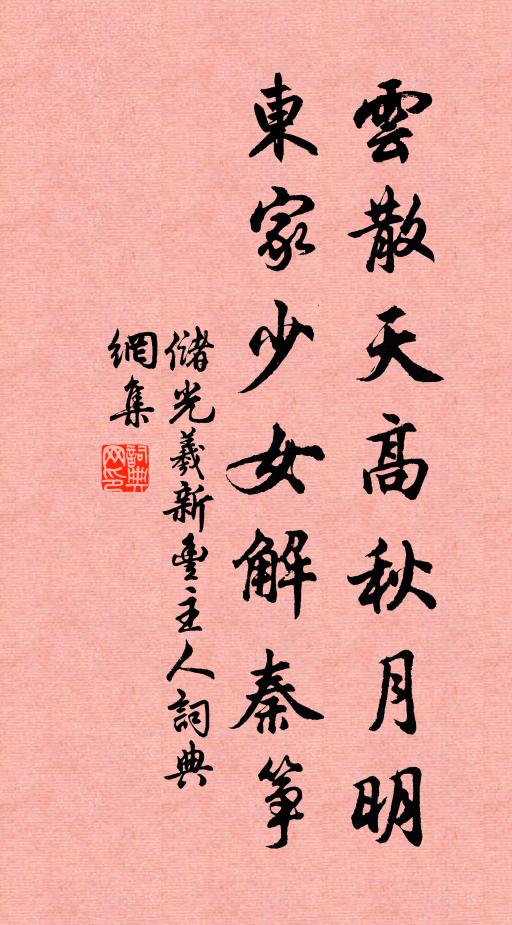 雲散天高秋月明
東家少女解秦箏
儲光羲新豊主人詞典
網集
詞典
网印